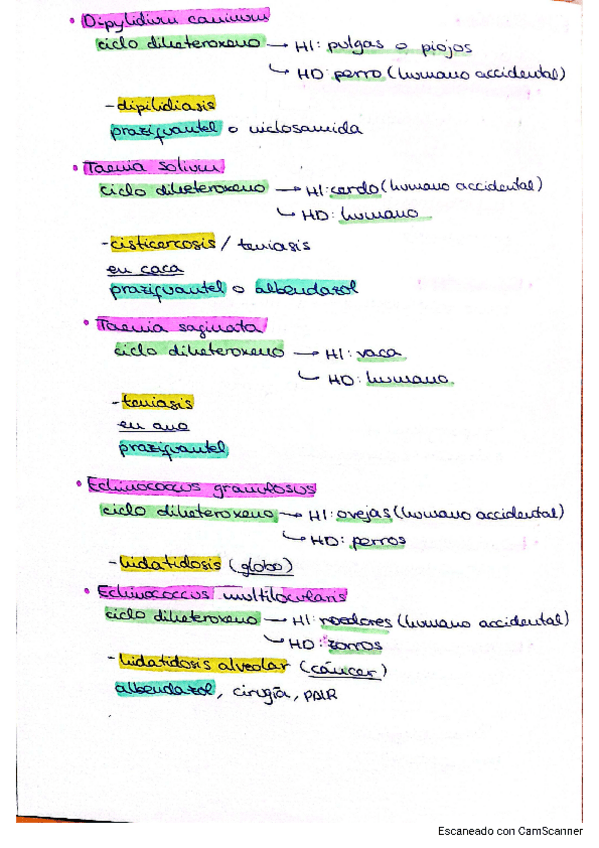 • Dipylidium caninum
ciclo diheteroxeno → HI: pulgas o piojos
↳ HD: perro (humano accidental)
- dipilidiasis
praziquantel o niclosamida
• Taenia solium
ciclo diheteroxeno → HI: cerdo (humano accidental)
↳ HD: humano
- cisticercosis / teniasis
en caca
praziquantel o albendazol
• Taenia saginata
ciclo diheteroxeno → HI: vaca
↳ HD: humano
- teniasis
en ano
praziquantel
• Echinococcus granulosus
ciclo diheteroxeno → HI: ovejas (humano accidental)
↳ HD: perros
- hidatidosis (globo)
• Echinococcus multilocularis
ciclo diheteroxeno → HI: roedores (humano accidental)
↳ HD: zorros
- hidatidosis alveolar (cáncer)
albendazol, cirugía, PAIR
Escaneado con CamScanner